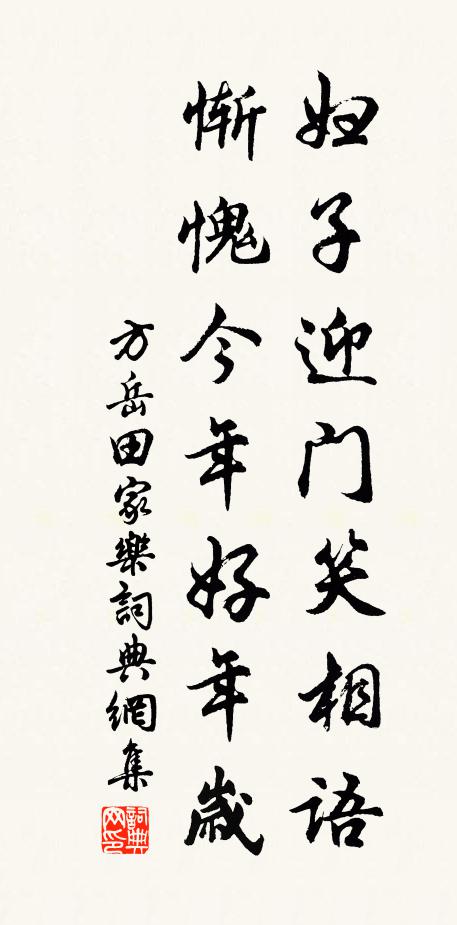 妇子迎门笑相语
惭愧今年好年歳
方岳田家樂詞典網集
詞典网印